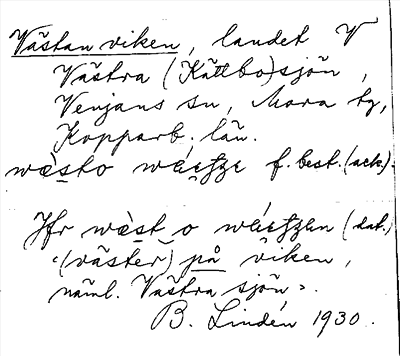 Västan viken, landet V
Västra (Kättbo)sjön,
Venjans sn, Mora tg,
Kopparb. län.
wä̀sto wéi f. best. (ack).
Jfr wä̀st o (dat.)
"(väster) på viken,
näml. Västra sjön".
B. Lindén 1930.